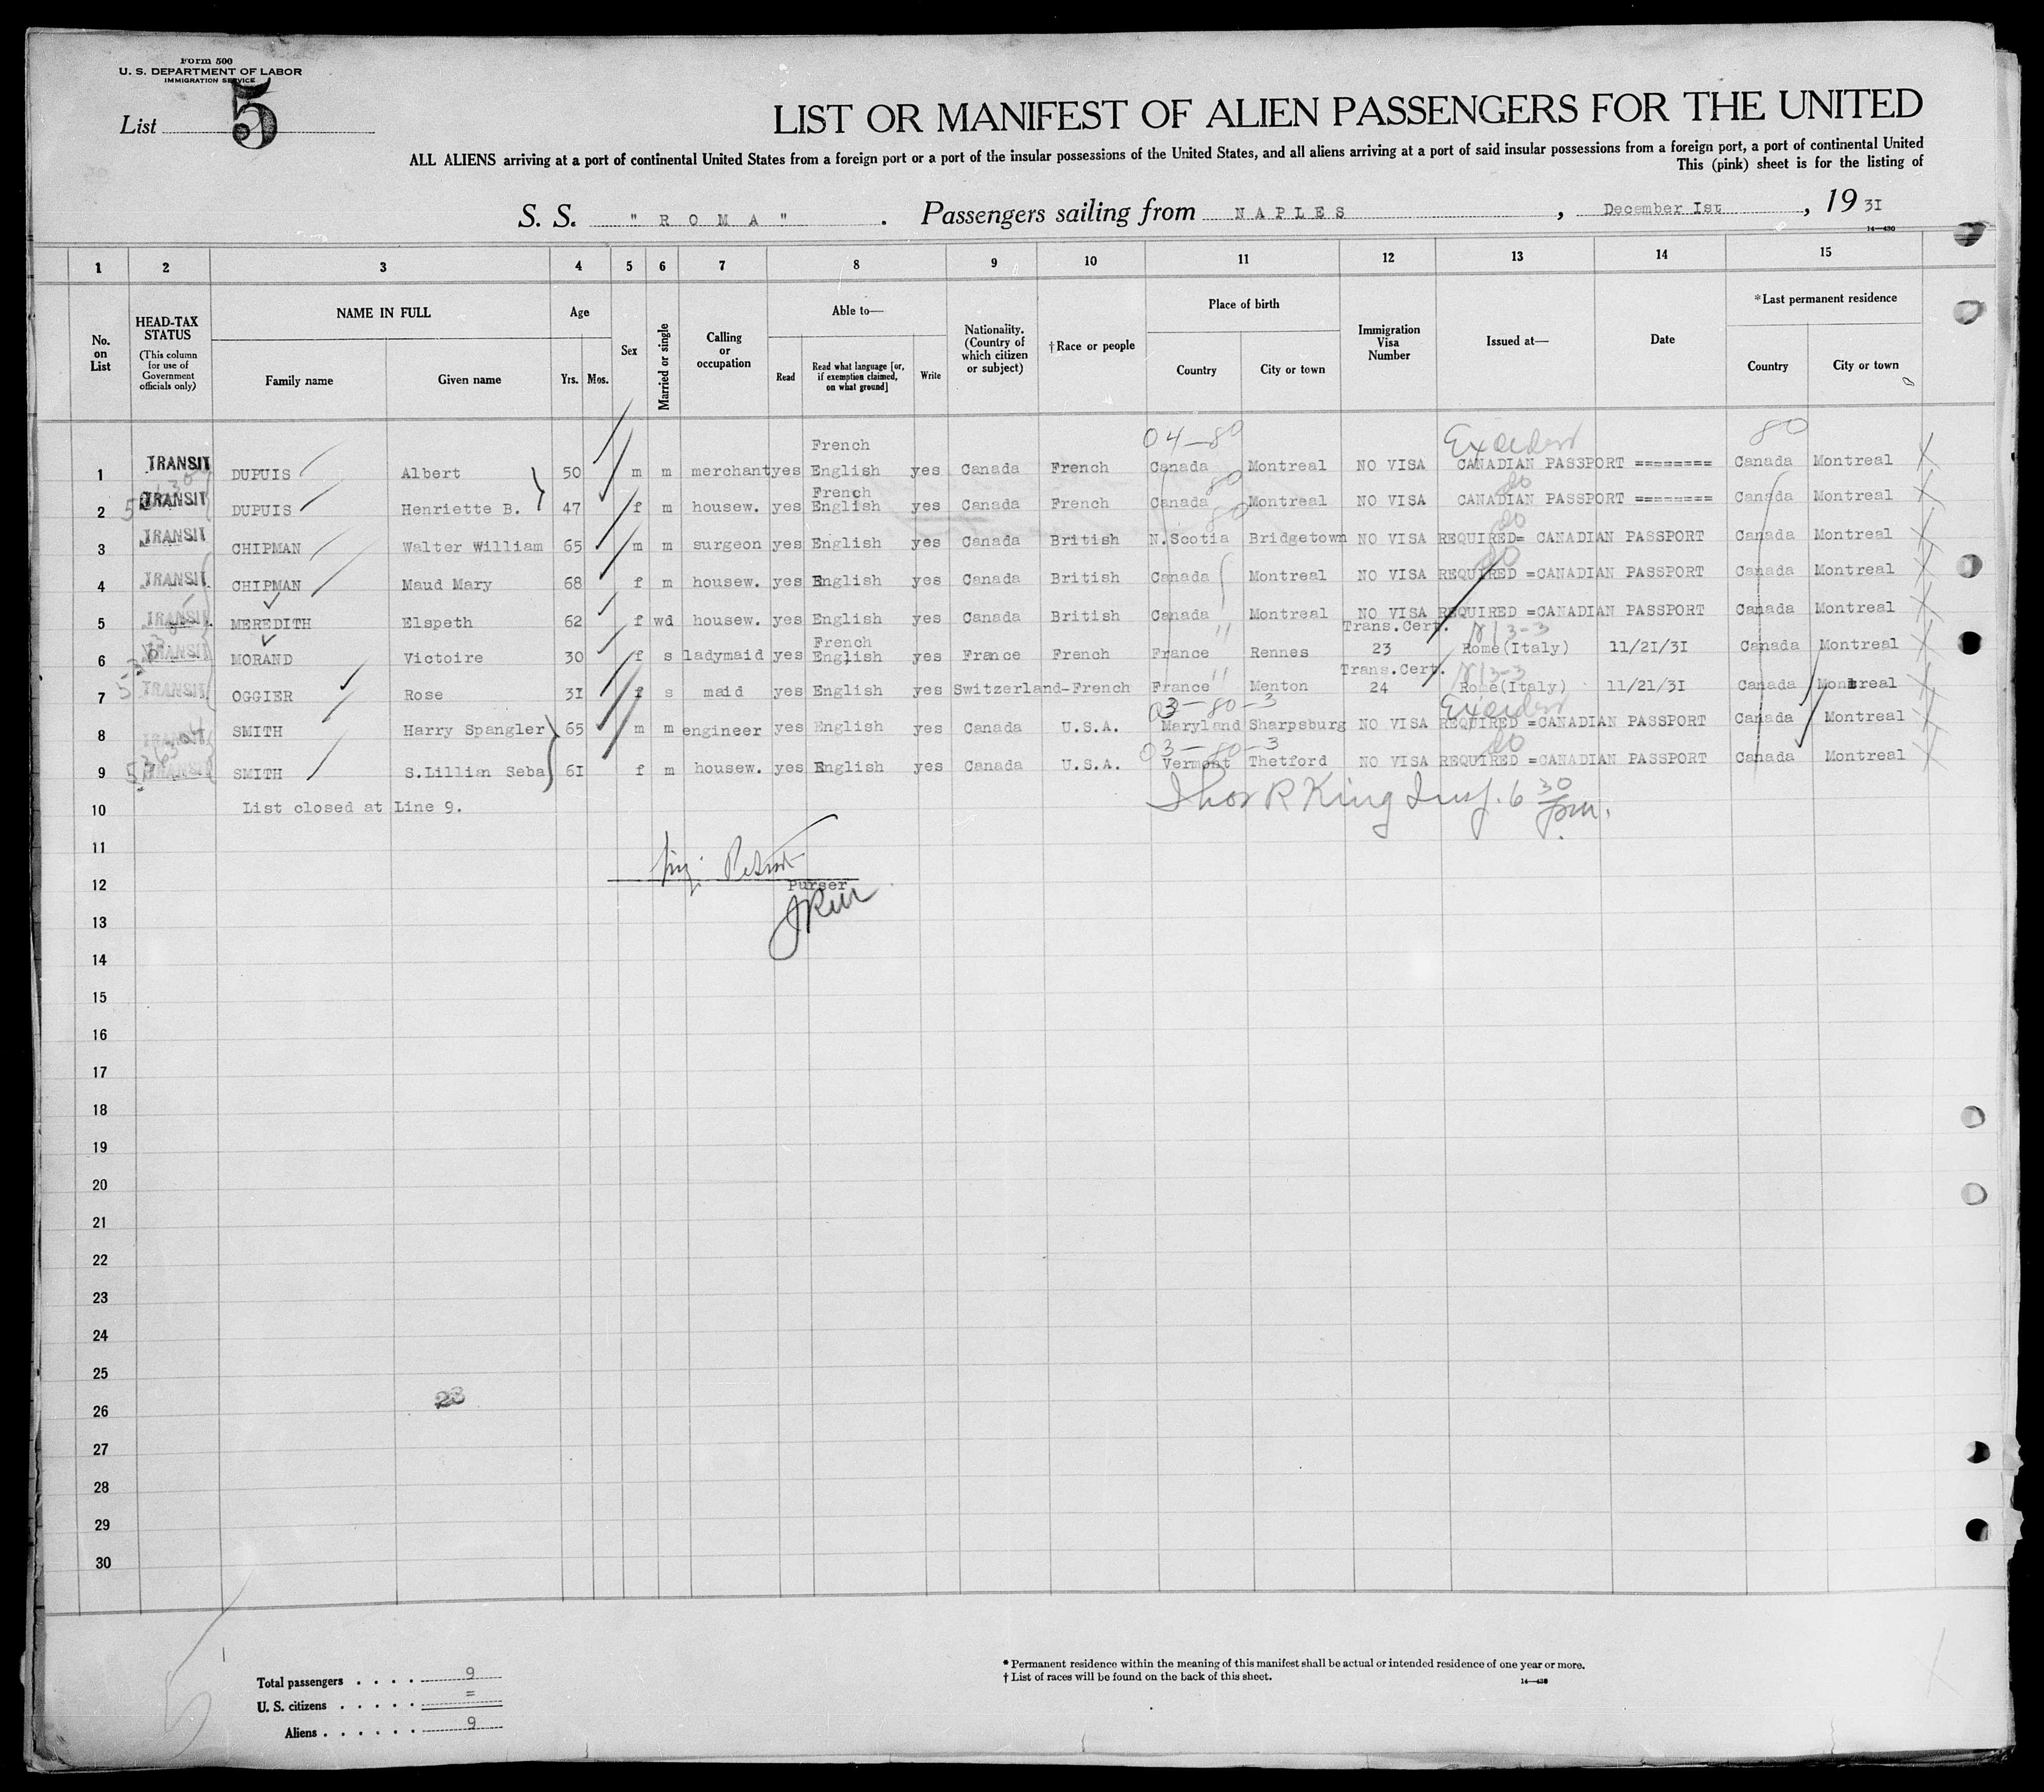 Form 500
U. S. DEPARTMENT OF LABOR
IMMIGRATION SERVICE
List 5
LIST OR MANIFEST OF ALIEN PASSENGERS FOR THE UNITED
ALL ALIENS arriving at a port of continental United States from a foreign port or a port of the insular possessions of the United States, and all aliens arriving at a port of said insular possessions from a foreign port, a port of continental United
This (pink) sheet is for the listing of
S. S. " R O M A " . Passengers sailing from N A P L E S , December Ist , 19 3I
14—430
1 2 3 4 5 6 7 8 9 10 11 12 13 14 15
No. on List
HEAD-TAX STATUS (This column for use of Government officials only)
NAME IN FULL
Family name Given name
Age
Yrs. Mos.
Sex
Married or single
Calling or occupation
Able to—
Read
Read what language [or, if exemption claimed, on what ground]
Write
Nationality. (Country of which citizen or subject)
†Race or people
Place of birth
Country City or town
Immigration Visa Number
Issued at—
Date
*Last permanent residence
Country City or town
04—80 80
French
1 TRANSIT DUPUIS Albert 50 m m merchant yes English yes Canada French Canada Montreal NO VISA CANADIAN PASSPORT ======== Canada Montreal X
80 do
French
2 TRANSIT DUPUIS Henriette B. 47 f m housew. yes English yes Canada French Canada Montreal NO VISA CANADIAN PASSPORT ======== Canada Montreal X
80 do
3 TRANSIT CHIPMAN Walter William 65 m m surgeon yes English yes Canada British N.Scotia Bridgetown NO VISA REQUIRED= CANADIAN PASSPORT Canada Montreal X
do
4 TRANSIT CHIPMAN Maud Mary 68 f m housew. yes English yes Canada British Canada Montreal NO VISA REQUIRED =CANADIAN PASSPORT Canada Montreal X
5 TRANSIT MEREDITH Elspeth 62 f wd housew. yes English yes Canada British Canada Montreal NO VISA REQUIRED =CANADIAN PASSPORT Canada Montreal X
French " Trans.Cert. 3-3
6 TRANSIT MORAND Victoire 30 f s ladymaid yes English yes France French France Rennes 23 Rome(Italy) 11/21/31 Canada Montreal X
" Trans.Cert. 3-3
7 TRANSIT OGGIER Rose 3I f s maid yes English yes Switzerland-French France Menton 24 Rome(Italy) 11/21/31 Canada Montreal X
03—80—3
8 TRANSIT SMITH Harry Spangler 65 m m engineer yes English yes Canada U.S.A. Maryland Sharpsburg NO VISA REQUIRED =CANADIAN PASSPORT Canada Montreal X
03—80—3 do
9 TRANSIT SMITH S.Lillian Seba 6I f m housew. yes English yes Canada U.S.A. Vermont Thetford NO VISA REQUIRED =CANADIAN PASSPORT Canada Montreal X
10 List closed at Line 9. Thos R King Insp. 6 30 pm.
11
12 Purser
13
14
15
16
17
18
19
20
21
22
23
24
25
26 23
27
28
29
30
Total passengers . . . . 9
U. S. citizens . . . . . =
Aliens . . . . . . 9
* Permanent residence within the meaning of this manifest shall be actual or intended residence of one year or more.
† List of races will be found on the back of this sheet.
14—430